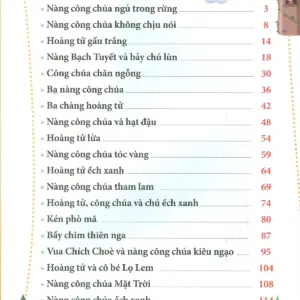 Nàng công chúa ngủ trong rừng 3
Nàng công chúa không chịu nói 8
Hoàng tử gấu trắng 14
Nàng Bạch Tuyết và bảy chú lùn 18
Công chúa chăn ngỗng 30
Bạ nàng công chúa 36
Ba chàng hoàng tử 42
Nàng công chúa và hạt đậu 48
Hoàng tử lừa 54
Nàng công chúa tóc vàng 59
Hoàng tử ếch xanh 64
Nàng công chúa tham lam 69
Hoàng tử, công chúa và chú ếch xanh 74
Kén phò mã 80
Bầy chim thiên nga 87
Vua Chích Choè và nàng công chúa kiêu ngạo 95
Hoàng tử và cô bé Lọ Lem 104
Nàng công chúa Mặt Trời 108
Nàng công chúa ếch xanh 114